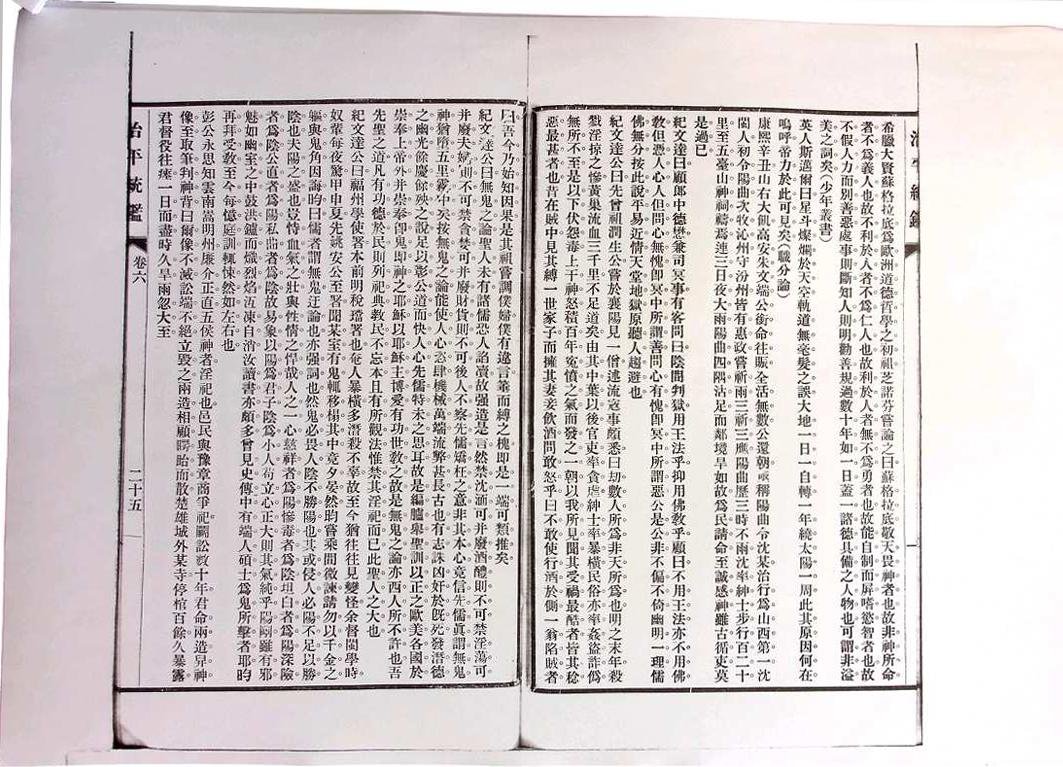 希臘大賢蘇格拉底爲歐洲道德哲學之初祖芝諾芬嘗論之曰蘇格拉底敬天畏神者也故非神所命
者不爲義人也故不利於人者不爲仁人也故利於人者無不爲勇者也故能自制而屏嗜慾智者也故
不假人力而別善惡處事則斷知人則明勸善規過數十年如一日蓋一諸德具備之人物也可謂非溢
美之詞矣（少年叢書）
英人斯邁爾曰星斗燦爛於天空軌道無毫髮之誤大地一日一自轉一年繞太陽一周此其原因何在
嗚呼帝力於此可見矣（職分論）
康熙辛丑山右大飢高安朱文端公銜命往賑全活無數公還朝亟稱陽曲令沈某治行爲山西第一沈
閩人初令陽曲次牧沁州守汾州皆有惠政嘗祈雨三祈三應陽曲歷三時不雨沈率紳士步行百二十
里至五臺山神祠禱焉連三日夜大雨陽曲四隅沾足而鄰境旱如故爲民請命至誠感神雖古循吏莫
是過已
紀文達曰顧郎中德懋兼司冥事有客問曰陰間判獄用王法乎抑用佛教乎顧曰不用王法亦不用佛
教但憑人心人但問心無愧卽冥中所謂善問心有愧卽冥中所謂惡公是公非不偏不倚幽明一理儒
佛無分按此說平易近情天堂地獄原聽人趨避也
紀文達公曰先曾祖潤生公嘗於襄陽見一僧述流寇事頗悉曰劫數人所爲非天所爲也明之末年殺
戮淫掠之慘黃巢流血三千里不足道矣由其中葉以後官吏率貪虐紳士率暴橫民俗亦率姦盜詐僞
無所不至是以下伏怨毒上干神怒積百年寃憤之氣而發之一朝以我所見聞其受禍最酷者皆其稔
惡最甚者也昔在賊中見其縛一世家子而擁其妻妾飲酒問敢怒乎曰不敢使行酒於側一翁陷賊者
曰吾今乃始知因果是其祖嘗調僕婦僕有違言箠而縛之槐卽是一端可類推矣
紀文達公曰無鬼之論聖人未有諸儒恐人諂瀆故强造是言然禁沈湎可并廢酒醴則不可禁淫蕩可
并廢夫婦則不可禁貪婪可并廢財貨則不可後人不察先儒矯枉之意非其本心竟信先儒眞謂無鬼
神猶墮五里霧中矣按無鬼之論能使人心恣肆機械萬端流弊甚長古也有志誅凶奸於旣死發潛德
之幽光餘慶餘殃之說足以彰公道而快人心先儒特未之思耳故是編臚舉聖訓以正之歐美各國於
崇奉上帝外并崇奉卽鬼卽神之耶穌以耶穌主博愛有功世敎之故是無鬼之論亦西人所不許也吾
先聖之道凡有功德於民則列祀典教民不忘本且有所觀法惟禁其淫祀而已此聖人之大也
紀文達公曰福州學使署本前明稅璫署也奄人暴橫多潛殺不辜故至今猶往往見變怪余督閩學時
奴輩每夜驚甲申夏先姚安公至署聞某室有鬼輒移榻其中竟夕晏然昀嘗乘間微諫請勿以千金之
軀與鬼角因誨昀曰儒者謂無鬼迂論也亦强詞也然鬼必畏人陰不勝陽也其或侵人必陽不足以勝
陰也夫陽之盛也豈恃血氣之壯與性情之悍哉人之一心慈祥者爲陽慘毒者爲陰坦白者爲陽深險
者爲陰公直者爲陽私曲者爲陰故易象以陽爲君子陰爲小人苟立心正大則其氣純乎陽剛雖有邪
魅如幽室之中鼓洪鑪而熾烈焰冱凍自消汝讀書亦頗多曾見史傳中有端人碩士爲鬼所擊者耶昀
再拜受敎至今每憶庭訓輒悚然如左右也
彭公永思知雲南嵩明州廉介正直五侯神者淫祀也邑民與豫章商爭祀鬬訟數十年君命兩造舁神
像至取筆判神背曰爾像不滅訟端不絕立毀之兩造相顧愕眙而散楚雄城外某寺停棺百餘久暴露
君督役往瘞一日而盡時久旱雨忽大至
治平統鑑
卷六
二十五